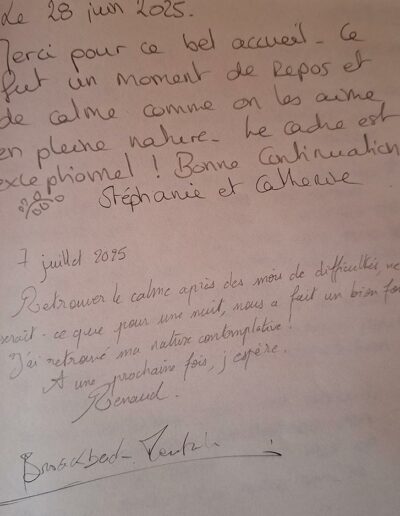 Le 28 juin 2025.
Merci pour ce bel accueil - Ce
fut un moment de Repos et
de calme comme on les aime
en pleine nature - Le cadre est
exceptionnel ! Bonne Continuation
Stéphanie et Catherine
7 juillet 2025
Retrouver le calme après des mois de difficultés, ne
serait-ce que pour une nuit, nous a fait un bien fou
J'ai retrouvé ma nature contemplative !
A une prochaine fois, j'espère.
Renaud.